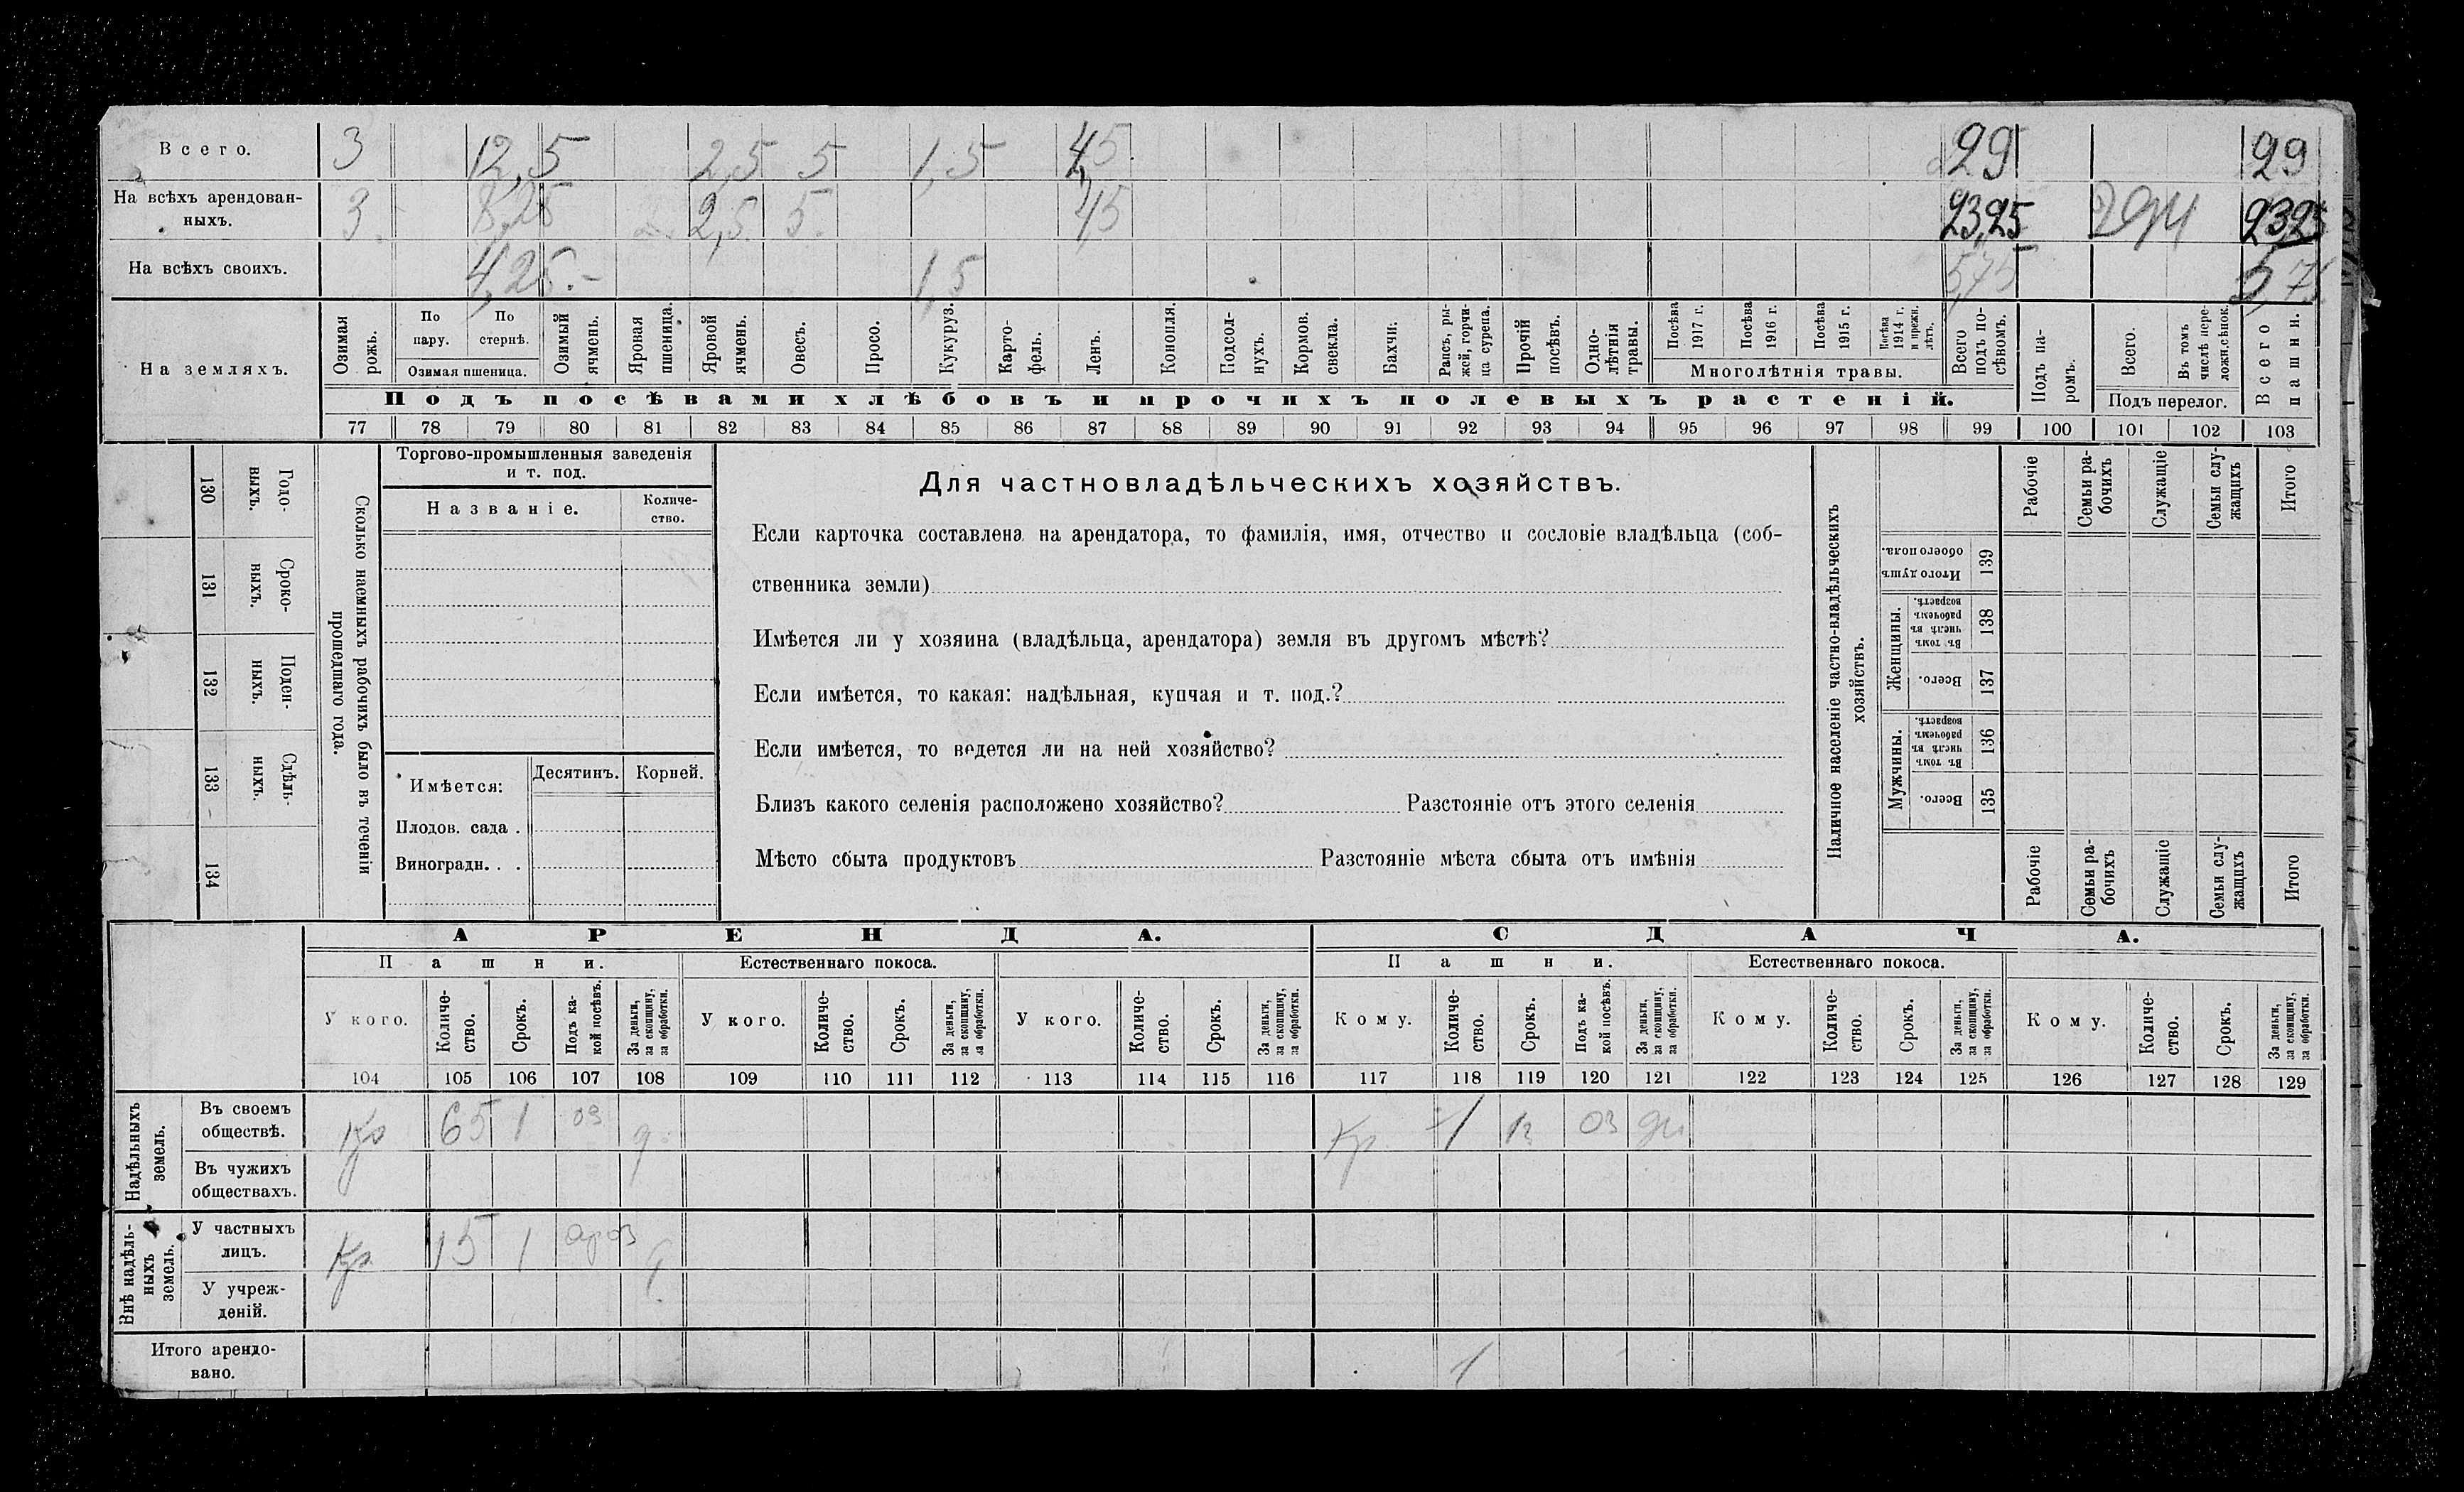 Всего. 3 12,5 2,5 5 1,5 4,5 29 29
На всѣхъ арендован-
ныхъ. 3 8,25 2,5 5 4,5 23,25 23,25
На всѣхъ своихъ. 4,25 1,5 5,75 5,75
На земляхъ.
Озимая рожь.
По пару.
По стернѣ.
Озимая пшеница.
Озимый ячмень.
Яровая пшеница.
Яровой ячмень.
Овесъ.
Просо.
Кукуруз.
Карто-
фель.
Ленъ.
Конопля.
Подсол-
нухъ.
Кормов. свекла.
Бахчи.
Рапсъ, ры-
жей, горчи-
ца сурепа.
Прочій посѣвъ.
Одно-
лѣтнія травы.
Посѣва 1917 г.
Посѣва 1916 г.
Посѣва 1915 г.
Посѣва 1914 г. и прежн. лѣтъ.
Многолѣтнія травы.
Всего подъ по-
сѣвомъ.
Подъ па-
ромъ.
Всего.
Въ томъ числѣ пере-
ложн. сѣнок.
Подъ перелог.
Всего пашни.
Подъ посѣвами хлѣбовъ и прочихъ полевыхъ растеній.
77 78 79 80 81 82 83 84 85 86 87 88 89 90 91 92 93 94 95 96 97 98 99 100 101 102 103
130 Годо-
выхъ.
131 Сроко-
выхъ.
132 Поден-
ныхъ.
133 Сдѣль-
ныхъ.
134
Сколько наемныхъ рабочихъ было въ теченіи
прошедшаго года.
Торгово-промышленныя заведенія
и т. под.
Названіе.
Количе-
ство.
Имѣется: Десятинъ. Корней.
Плодов. сада .
Виноградн. . .
Для частновладѣльческихъ хозяйствъ.
Если карточка составлена на арендатора, то фамилія, имя, отчество и сословіе владѣльца (соб-
ственника земли)
Имѣется ли у хозяина (владѣльца, арендатора) земля въ другомъ мѣстѣ?
Если имѣется, то какая: надѣльная, купчая и т. под.?
Если имѣется, то ведется ли на ней хозяйство?
Близъ какого селенія расположено хозяйство? Разстояніе отъ этого селенія
Мѣсто сбыта продуктовъ Разстояніе мѣста сбыта отъ имѣнія
Наличное населеніе частно-владѣльческихъ
хозяйствъ.
Рабочіе
Семьи ра-
бочихъ
Служащіе
Семьи слу-
жащихъ
Итого
Итого душъ обоего пола. 139
Женщины.
Въ томъ числѣ въ рабочемъ возрастѣ. 138
Всего. 137
Мужчины.
Въ томъ числѣ въ рабочемъ возрастѣ. 136
Всего. 135
Рабочіе
Семьи ра-
бочихъ
Служащіе
Семьи слу-
жащихъ
Итого
АРЕНДА. СДАЧА.
Пашни. Естественнаго покоса. Пашни. Естественнаго покоса.
У кого.
Количе-
ство.
Срокъ.
Подъ ка-
кой посѣвъ.
За деньги, за скопщину, за обработки.
У кого.
Количе-
ство.
Срокъ.
За деньги, за скопщину, за обработки.
У кого.
Количе-
ство.
Срокъ.
За деньги, за скопщину, за обработки.
Кому.
Количе-
ство.
Срокъ.
Подъ ка-
кой посѣвъ.
За деньги, за скопщину, за обработки.
Кому.
Количе-
ство.
Срокъ.
За деньги, за скопщину, за обработки.
Кому.
Количе-
ство.
Срокъ.
За деньги, за скопщину, за обработки.
104 105 106 107 108 109 110 111 112 113 114 115 116 117 118 119 120 121 122 123 124 125 126 127 128 129
Надѣльныхъ земель.
Въ своемъ
обществѣ. Кр 65 1 оз д. Кр. 1 оз
Въ чужихъ
обществахъ.
Внѣ надѣль-
ныхъ земель.
У частныхъ
лицъ. Кр. 15 1
У учреж-
деній.
Итого арендо-
вано. 1